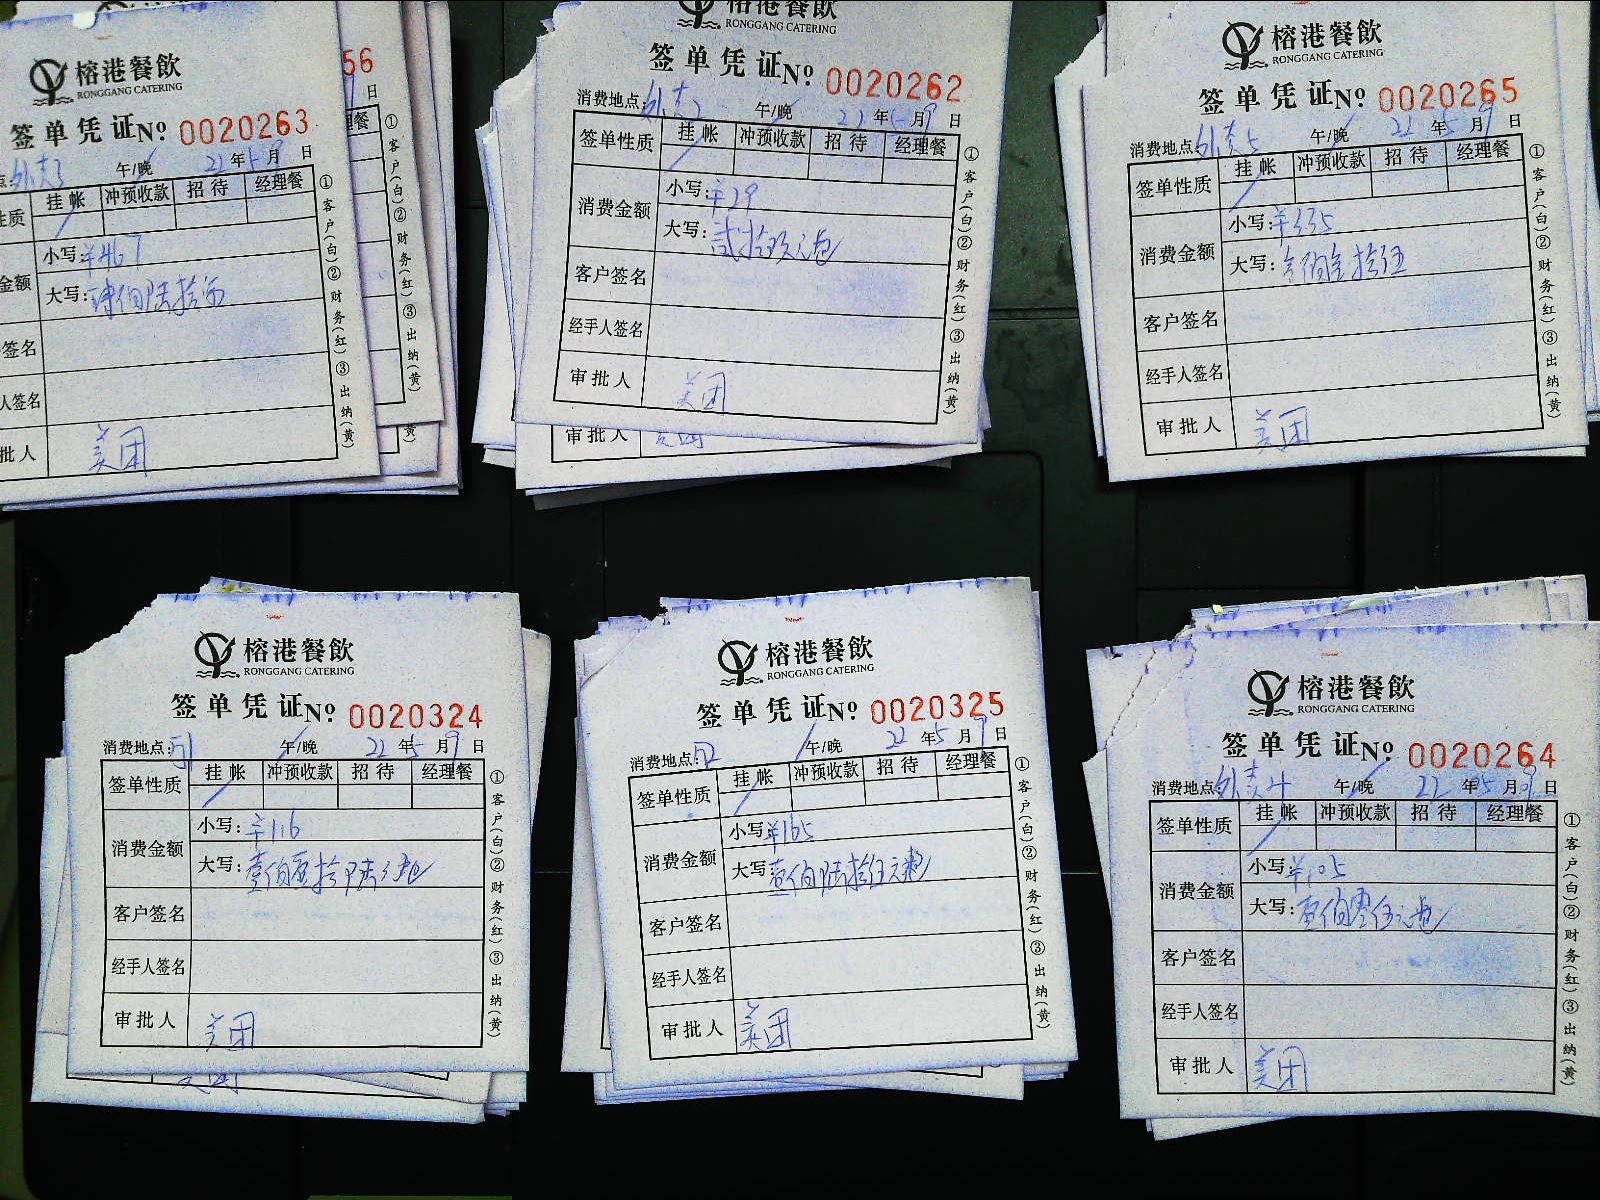 榕港餐飲
RONGGANG CATERING
签单凭证No 0020263
外卖3 午/晚 22年5月9日
性质 挂帐 冲预收款 招待 经理餐
金额 小写:¥467
大写:肆佰陆拾
签名
人签名
批人 美团
①客户(白)②财务(红)③出纳(黄)
56
日
餐
①客户(白)②财务(红)③出纳(黄)
榕港餐飲
RONGGANG CATERING
签单凭证No 0020262
消费地点:外卖2 午/晚 22年5月9日
签单性质 挂帐 冲预收款 招待 经理餐
消费金额 小写:¥29
大写:贰拾玖元
客户签名
经手人签名
审批人 美团
①客户(白)②财务(红)③出纳(黄)
审批人 美团
榕港餐飲
RONGGANG CATERING
签单凭证No 0020265
消费地点:外卖5 午/晚 22年5月9日
签单性质 挂帐 冲预收款 招待 经理餐
消费金额 小写:¥335
大写:叁佰叁拾伍
客户签名
经手人签名
审批人 美团
①客户(白)②财务(红)③出纳(黄)
榕港餐飲
RONGGANG CATERING
签单凭证No 0020324
消费地点: 午/晚 22年5月9日
签单性质 挂帐 冲预收款 招待 经理餐
消费金额 小写:¥116
大写:壹佰壹拾陆元
客户签名
经手人签名
审批人 美团
①客户(白)②财务(红)③出纳(黄)
榕港餐飲
RONGGANG CATERING
签单凭证No 0020325
消费地点: 午/晚 22年5月9日
签单性质 挂帐 冲预收款 招待 经理餐
消费金额 小写:¥165
大写:壹佰陆拾伍元
客户签名
经手人签名
审批人 美团
①客户(白)②财务(红)③出纳(黄)
榕港餐飲
RONGGANG CATERING
签单凭证No 0020264
消费地点:外卖4 午/晚 22年5月9日
签单性质 挂帐 冲预收款 招待 经理餐
消费金额 小写:¥105
大写:壹佰零伍元
客户签名
经手人签名
审批人 美团
①客户(白)②财务(红)③出纳(黄)